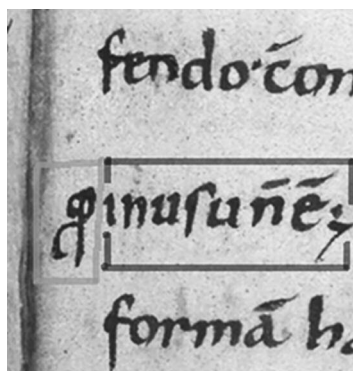 fendo·c̄on
ꝙ inusu n̄ ē;
formā ha